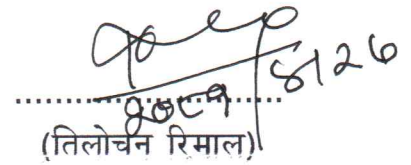 २०८१/५/२७
(तिलोचन रिमाल)